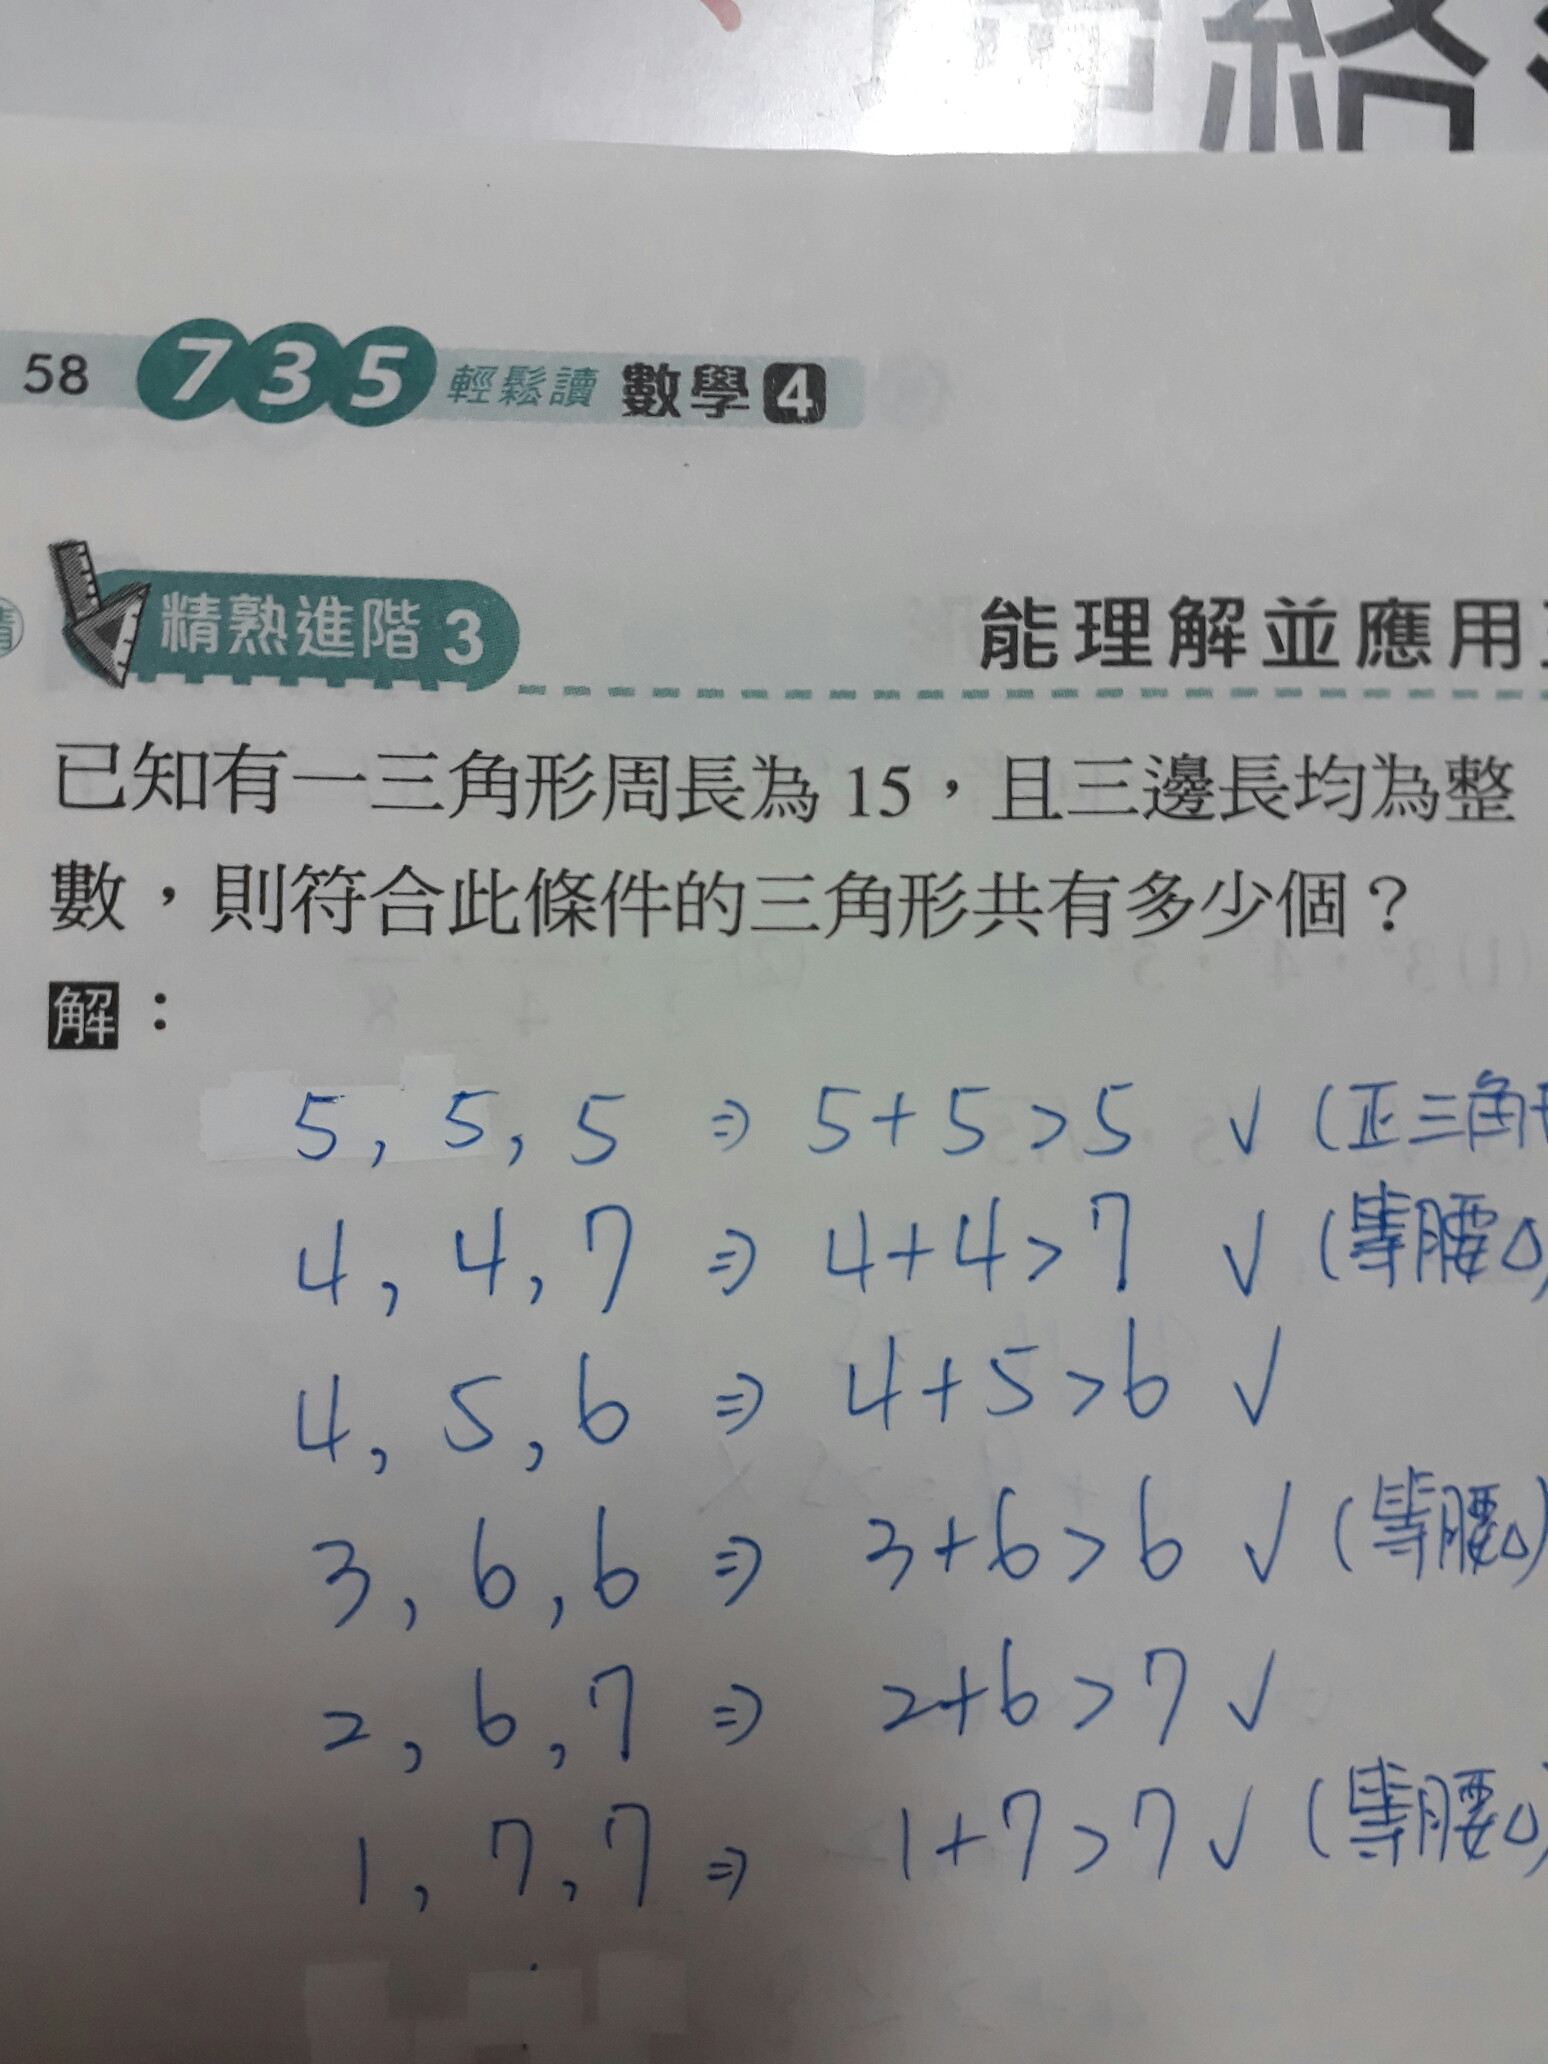 絡
58 735 輕鬆讀 數學4
精熟進階3 能理解並應用
已知有一三角形周長為15，且三邊長均為整
數，則符合此條件的三角形共有多少個？
解：
5, 5, 5 ⇒ 5+5>5 ✓ (正三角形
4, 4, 7 ⇒ 4+4>7 ✓ (等腰△)
4, 5, 6 ⇒ 4+5>6 ✓
3, 6, 6 ⇒ 3+6>6 ✓ (等腰△)
2, 6, 7 ⇒ 2+6>7 ✓
1, 7, 7 ⇒ 1+7>7 ✓ (等腰△)